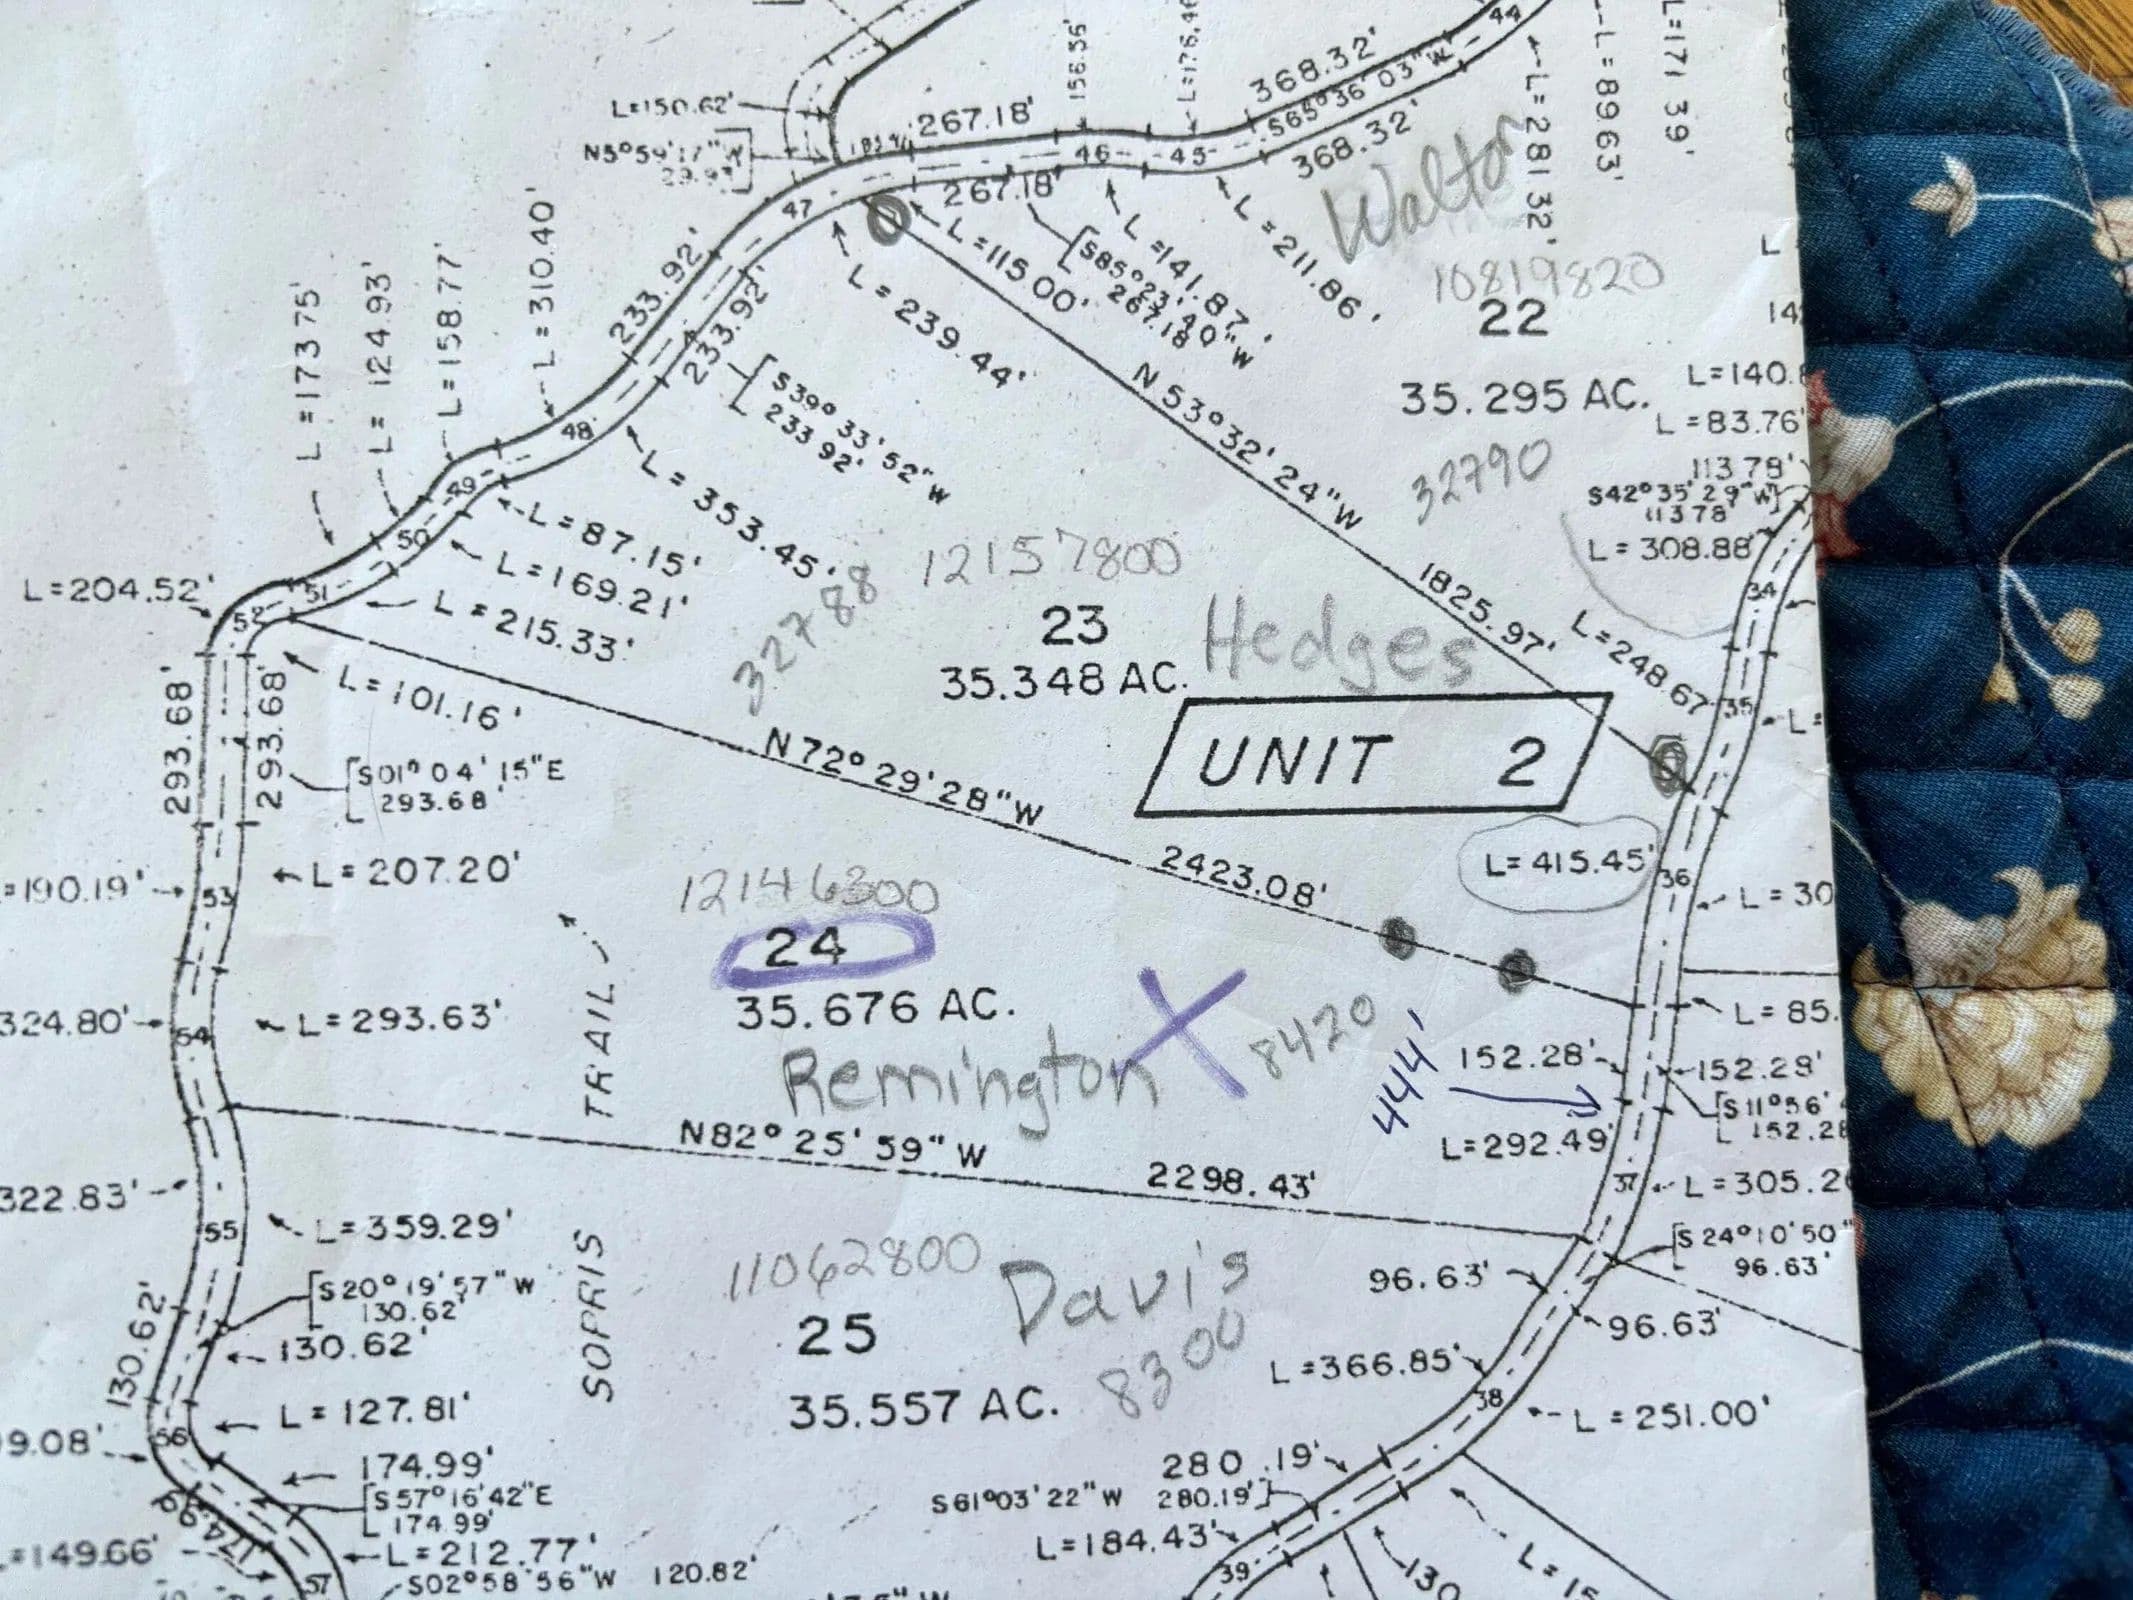 44
368.32'
156.56'
L=89.63'
L=171 39'
L=150.62'
267.18'
S65°36'03"W
368.32'
L=281 32'
N5°59'17"W
46
45
267.18'
47
Walton
L=115 00'
S85°23'40"W
267.18
L=141.87'
L=211.86'
10819820
22
35.295 AC.
L=310.40'
233.92'
233.92'
L=239.44'
L=173 75'
L=124.93'
L=158.77'
S39°33'52"W
233 92'
N 53°32'24"W
1825.97'
L=83.76'
32790
113.78'
S42°35'29"W
113 78'
L=308.88'
48
49
L=353.45'
L=87.15'
50
L=169.21'
12157800
32788
L=204.52'
51
52
L=215.33'
23
35.348 AC.
Hedges
34
L=248.67'
35
L=101.16'
293.68'
293.68'
S01°04'15"E
293.68'
N 72°29'28"W
2423.08'
UNIT 2
L=415.45'
36
=190.19'
L=207.20'
53
12146300
24
35.676 AC.
Remington
8420
324.80'
L=293.63'
54
SOPRIS TRAIL
444'
152.28'
152.28'
S11°56'
152.28
L=292.49'
N82°25'59"W
2298.43'
37
322.83'
L=359.29'
55
11062800
Davis
25
35.557 AC.
8300
S 24°10'50"
96.63'
96.63'
96.63'
S20°19'57"W
130.62'
130.62'
130.62'
L=366.85'
38
L=251.00'
9.08'
L=127.81'
56
174.99'
S57°16'42"E
174.99'
174.99'
280.19'
S61°03'22"W
280.19'
L=184.43'
39
=149.66'
L=212.77'
57
S02°58'56"W 120.82'